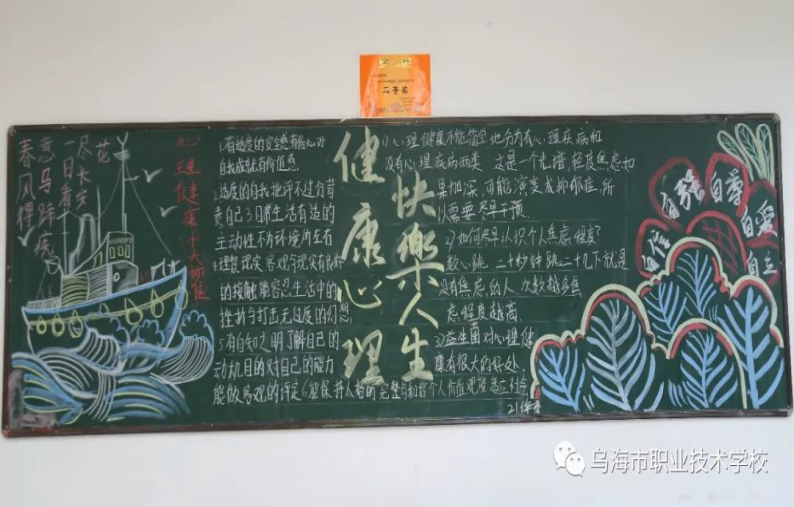 二等奖
春风得
意马蹄疾
一日看
尽长安
花
心理健康十大标准
1.有适度的安全感有自尊心对
自我成就有价值感
2适度的自我批评不过分夸
耀自己3日常生活有适的
主动性不为环境所左右
4理智现实客观与现实有良好
的接触能容忍生活中的
挫折与打击无过度的幻想
5有自知之明了解自己的
动机目的对自己的能力
能做客观的评定6能保持人格的完整与和谐个人价值观能适应社会
健康心理
快樂人生
1)心理健康不能简单地分为有心理疾病和
没有心理疾病两类 这是一个光谱,轻度焦虑如
果加深,可能演变为抑郁症,所
以需要尽早干预
2)如何尽早认识个人焦虑程度?
数心跳 二十秒钟跳二十几下就是
没有焦虑的人 次数越多焦
虑程度越高
3)益生菌对心理健
康有很大的好处
自尊
自爱
自立
乌海市职业技术学校